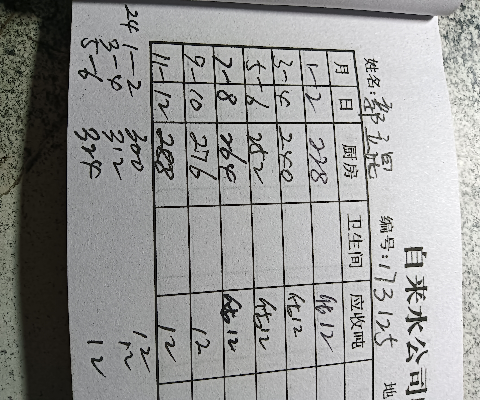 自来水公司
编号:173125 地
姓名:
月 日 厨房 卫生间 应收吨
1-2 228 估12
3-4 240 估12
5-6 252 估12
7-8 264 估12
9-10 276 12
11-12 288 12
24 1-2 300 12
3-4 312 12
5-6 324 12